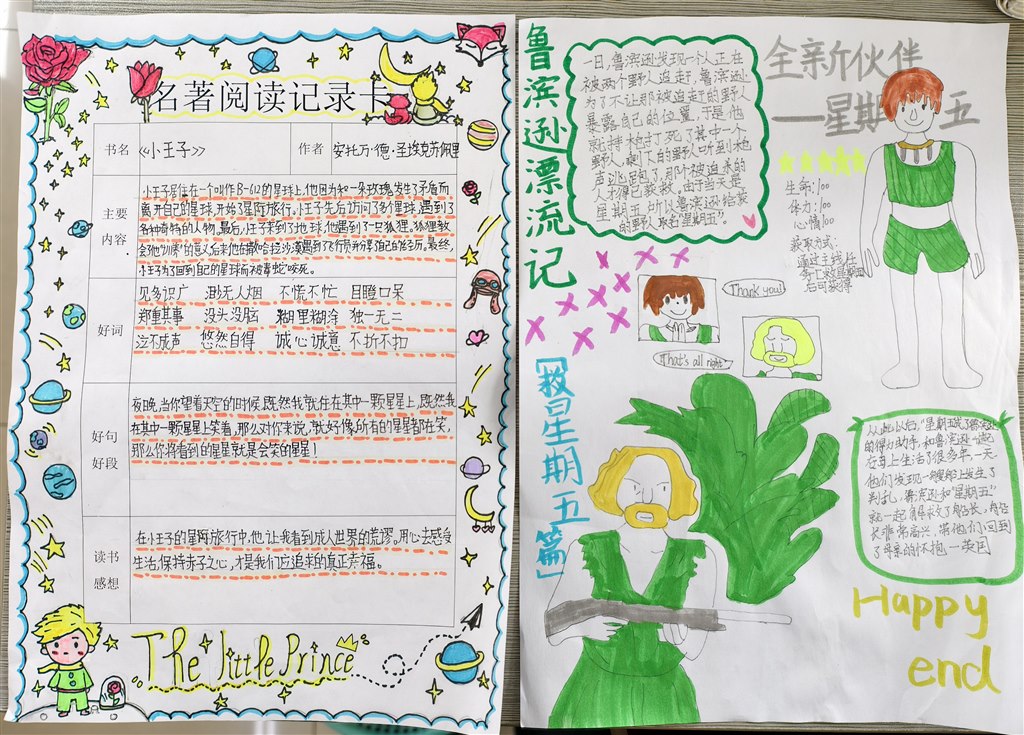 名著阅读记录卡
书名
《小王子》
作者
安托万·德·圣埃克苏佩里
主要
内容
小王子居住在一个叫作B-612的星球上,他因为和一朵玫瑰发生了矛盾而
离开自己的星球,开始了星际旅行。小王子先后访问了多个星球,遇到了
各种奇特的人物,最后,小王子来到了地球,他遇到了一只狐狸,狐狸教
会了他"训养"的意义,后来他在撒哈拉沙漠遇到了飞行员并分享自己的经历。最终,
小王子为了回到自己的星球而被毒蛇咬死。
好词
见多识广 渺无人烟 不慌不忙 目瞪口呆
郑重其事 没头没脑 糊里糊涂 独一无二
泣不成声 悠然自得 诚心诚意 不折不扣
好句
好段
夜晚,当你望着天空的时候,既然我就在在其中一颗星星上,既然我
在其中一颗星星上笑着,那么对你来说,就好像所有的星星都在笑,
那么你将看到的星星就是会笑的星星!
读书
感想
在小王子的星际旅行中,他让我看到成人世界的荒谬。用心去感受
生活,保持赤子之心,才是我们应追求的真正幸福。
The little Prince
鲁滨逊漂流记
[救星期五篇]
一日,鲁滨逊发现一个人正在
被两个野人追赶,鲁滨逊
为了不让那被追赶的野人
暴露自己的位置,于是他
就持枪打死了其中一个
野人,剩下的野人听到枪
声逃跑了,那个被追来的
人才得已获救。由于当天是
星期五,所以鲁滨逊给救
的野人取名"星期五"。
全新伙伴
——星期五
生命:100
体力:100
心情:100
获取方式:
通过主线任
务
后可获得
Thank you!
That's all right
从此以后,"星期五"成了鲁滨逊
的得力助手,和鲁滨逊一起
在岛上生活了很多年,一天
他们发现一艘船上发生了
判乱,鲁滨逊和"星期五"
就一起解救了船长,船
长非常高兴,带他们回到
了母亲的怀抱—英国
Happy
end